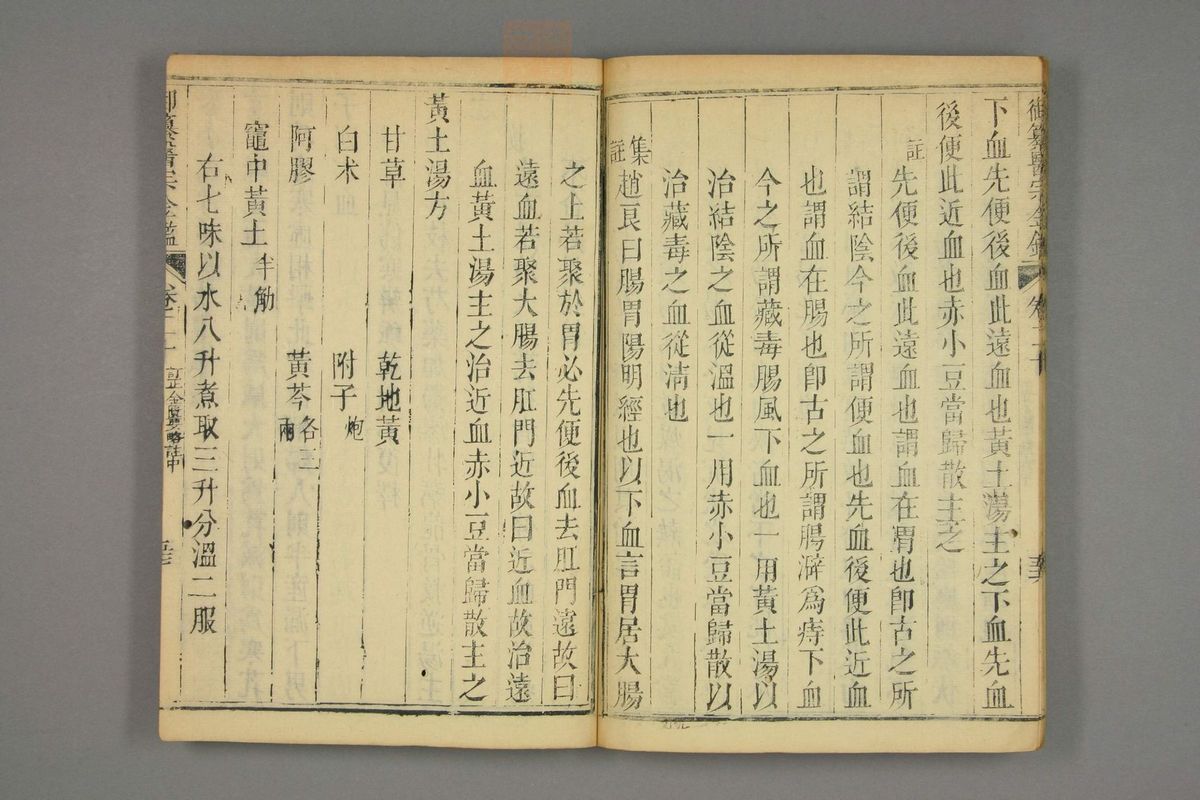 下血先便後血此遠血也黃土湯主之下血先血
後便此近血也赤小豆當歸散主之
註
先便後血此遠血也謂血在胃也卽古之所
謂結陰今之所謂便血也先血後便此近血
也謂血在腸也卽古之所謂腸澼爲痔下血
今之所謂藏毒腸風下血也一用黃土湯以
治結陰之血從溫也一用赤小豆當歸散以
治藏毒之血從淸也
集註
趙良曰腸胃陽明經也以下血言胃居大腸
之上若聚於胃必先便後血去肛門遠故曰
遠血若聚大腸去肛門近故曰近血故治遠
血黃土湯主之治近血赤小豆當歸散主之
黃土湯方
甘草 乾地黃
白术 附子炮
阿膠 黃芩各三兩
竈中黃土半觔
右七味以水八升煮取三升分溫二服
御纂醫宗金鑑